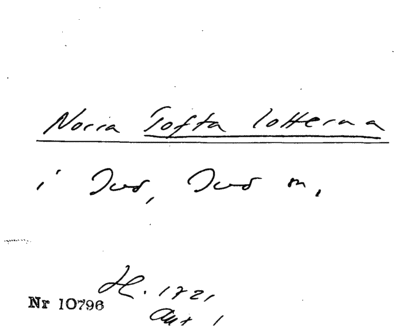 Norra Tofta lotterna
i Sund, Sund m,
H. 1721
Akt 1
Nr 10796